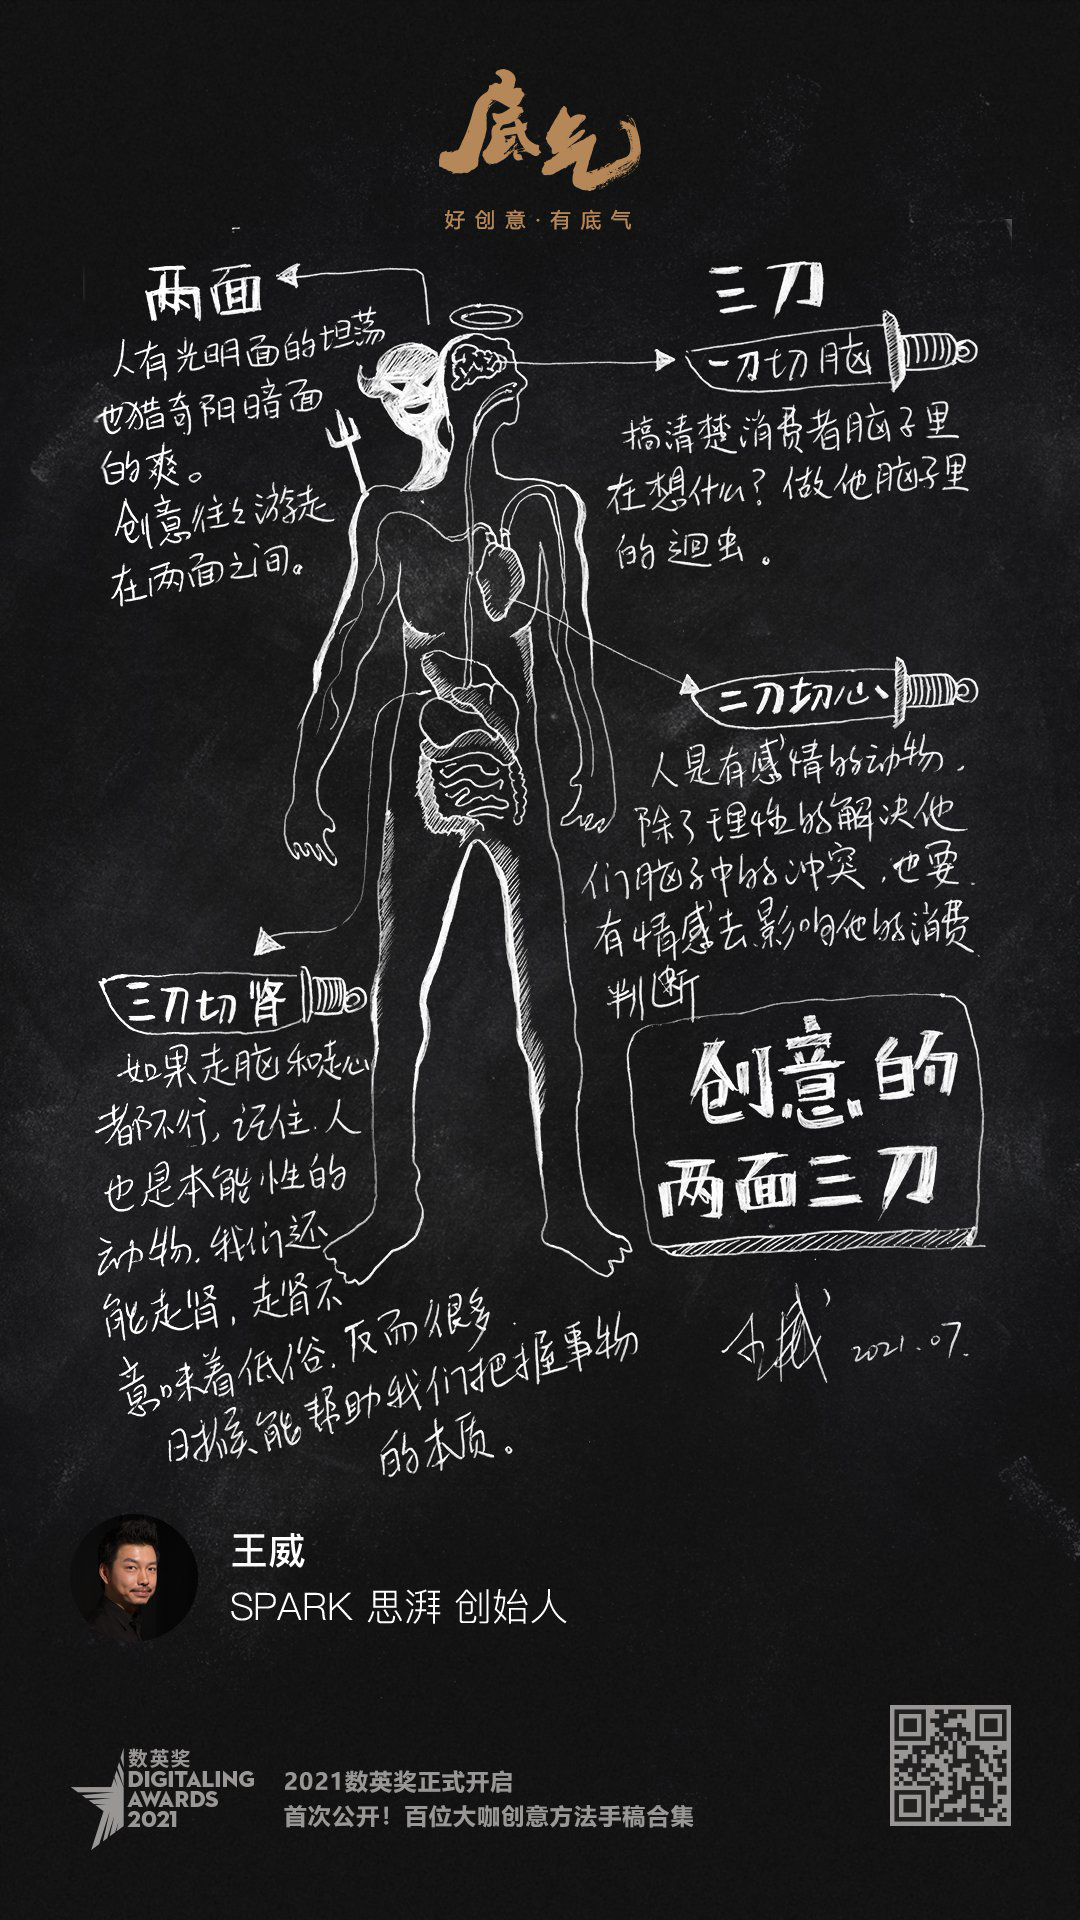 底气
好创意·有底气
两面
人有光明面的坦荡
也猎奇阴暗面
的爽。
创意往往游走
在两面之间。
三刀
一刀切脑
搞清楚消费者脑子里
在想什么？做他脑子里
的迴虫。
二刀切心
人是有感情的动物.
除了理性的解决他
们脑子中的冲突,也要
有情感去影响他的消费
判断
三刀切肾
如果走脑和走心
都不行,记住.人
也是本能性的
动物.我们还
能走肾,走肾不
意味着低俗.反而很多
时候能帮助我们把握事物
的本质。
创意的
两面三刀
王威 2021.07.
王威
SPARK 思湃 创始人
数英奖
DIGITALING
AWARDS
2021
2021数英奖正式开启
首次公开！百位大咖创意方法手稿合集